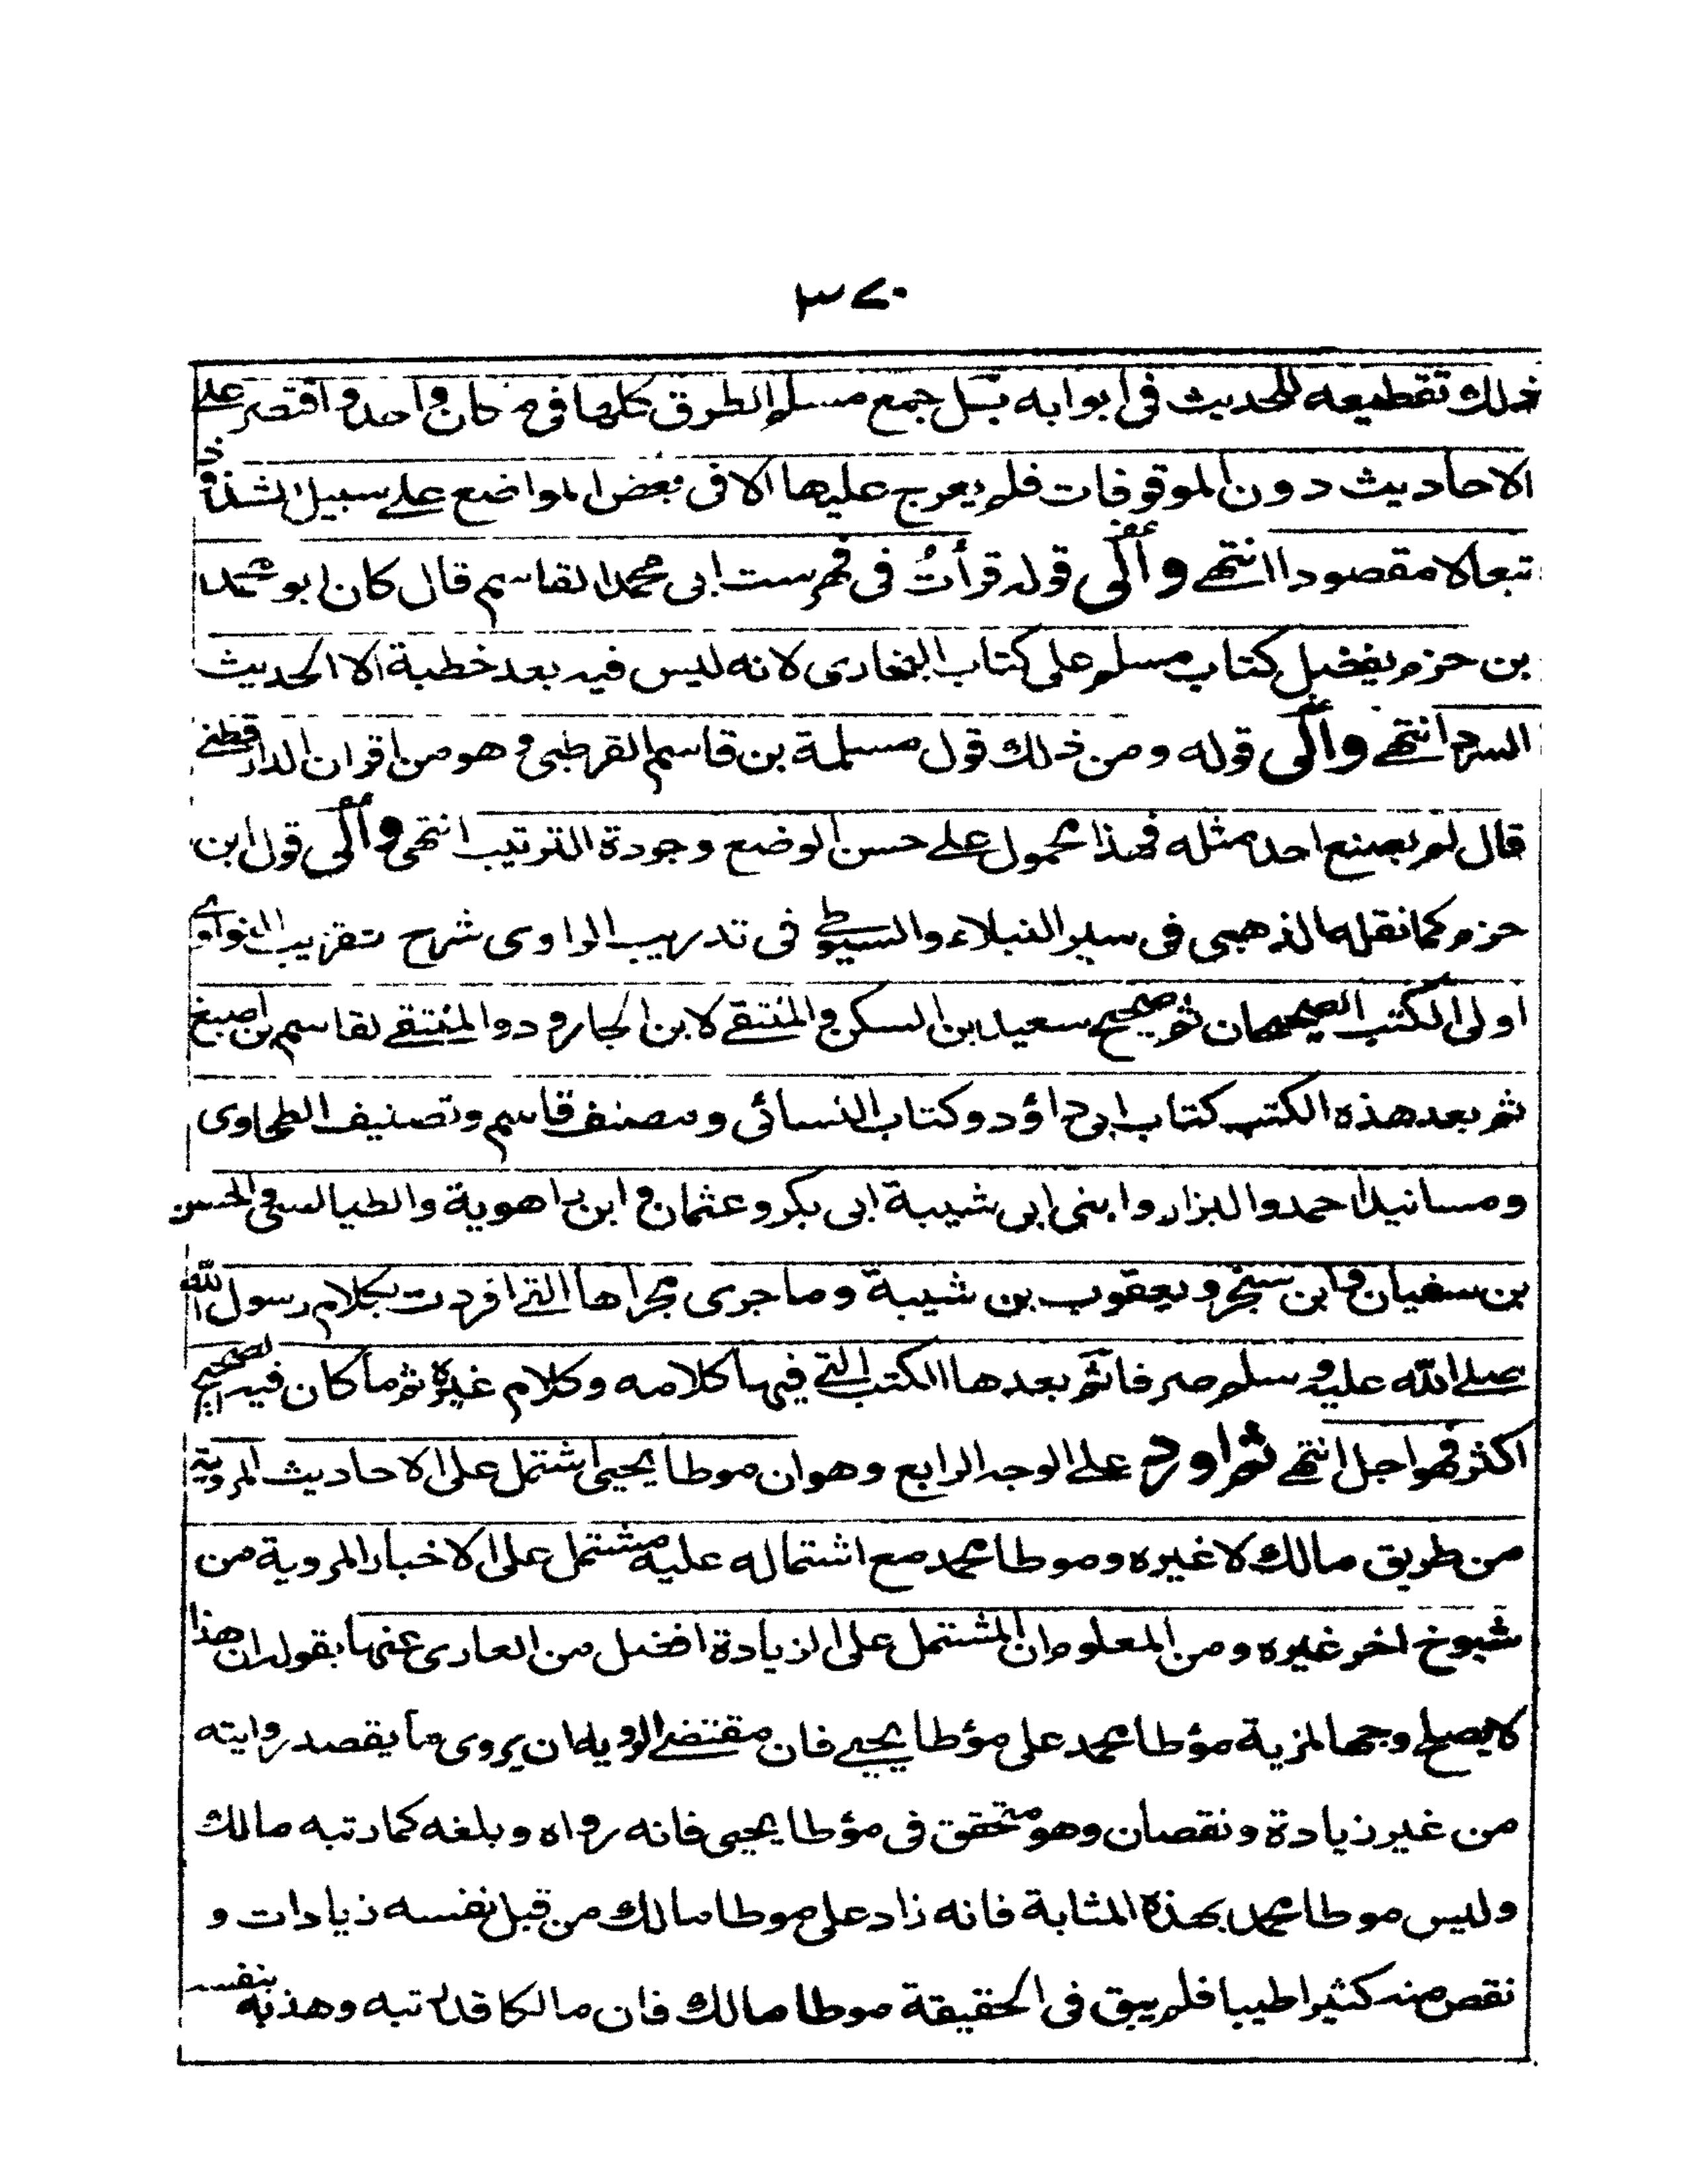 ٣٧٠
ذلك تقطيعه للحديث في ابوابه بل جمع مسلم الطرق كلها في مكان واحد واقتصر على
الاحاديث دون الموقوفات فلم يعرج عليها الا في بعض المواضع على سبيل الشذوذ
تبعا لا مقصودا انتهى والى قوله قرأت في فهرست ابي محمد القاسم قال كان ابو محمد
بن حزم يفضل كتاب مسلم على كتاب البخارى لانه ليس فيه بعد خطبة الا الحديث
السرد انتهى والى قوله ومن ذلك قول مسلمة بن قاسم القرطبى وهو من اقران الدارقطنى
قال لم يصنع احد مثله فهذا محمول على حسن الوضع وجودة الترتيب انتهى والى قول ابن
حزم كما نقله الذهبى فى سير النبلاء والسيوطى فى تدريب الراوى شرح تقريب النواوى
اولى الكتب الصحيحان ثم صحيح سعيد بن السكن والمنتقى لابن الجارود والمنتقى لقاسم بن اصبغ
ثم بعد هذه الكتب كتاب ابى داؤد وكتاب النسائى ومصنف قاسم وتصنيف الطحاوى
ومسانيد احمد والبزار وابنى ابى شيبة ابى بكر وعثمان وابن راهوية والطيالسى والحسن
بن سفيان وابن سنجر ويعقوب بن شيبة وما جرى مجراها التى افردت بكلام رسول الله
صلى الله عليه وسلم صرفا ثم بعدها الكتب التى فيها كلامه وكلام غيره ثم ما كان فيه الصحيح
اكثر فهو اجل انتهى ثم اورد على الوجه الرابع وهو ان موطا يحيى اشتمل على الاحاديث المروية
من طريق مالك لا غيره وموطا محمد مع اشتماله عليه مشتمل على الاخبار المروية من
شيوخ اخر غيره ومن المعلوم ان المشتمل على الزيادة افضل من العارى عنها بقوله ان هذا
لا يصلح وجها لمزية مؤطا محمد على مؤطا يحيى فان مقتضى الرواية ان يروى ما يقصد روايته
من غير زيادة ونقصان وهو متحقق فى مؤطا يحيى فانه رواه وبلغه كما رتبه مالك
وليس موطا محمد بهذه المثابة فانه زاد على موطا مالك من قبل نفسه زيادات و
نقص منه كثيرا طيبا فلم يبق فى الحقيقة موطا مالك فان مالكا قد رتبه وهذبه بنفسه